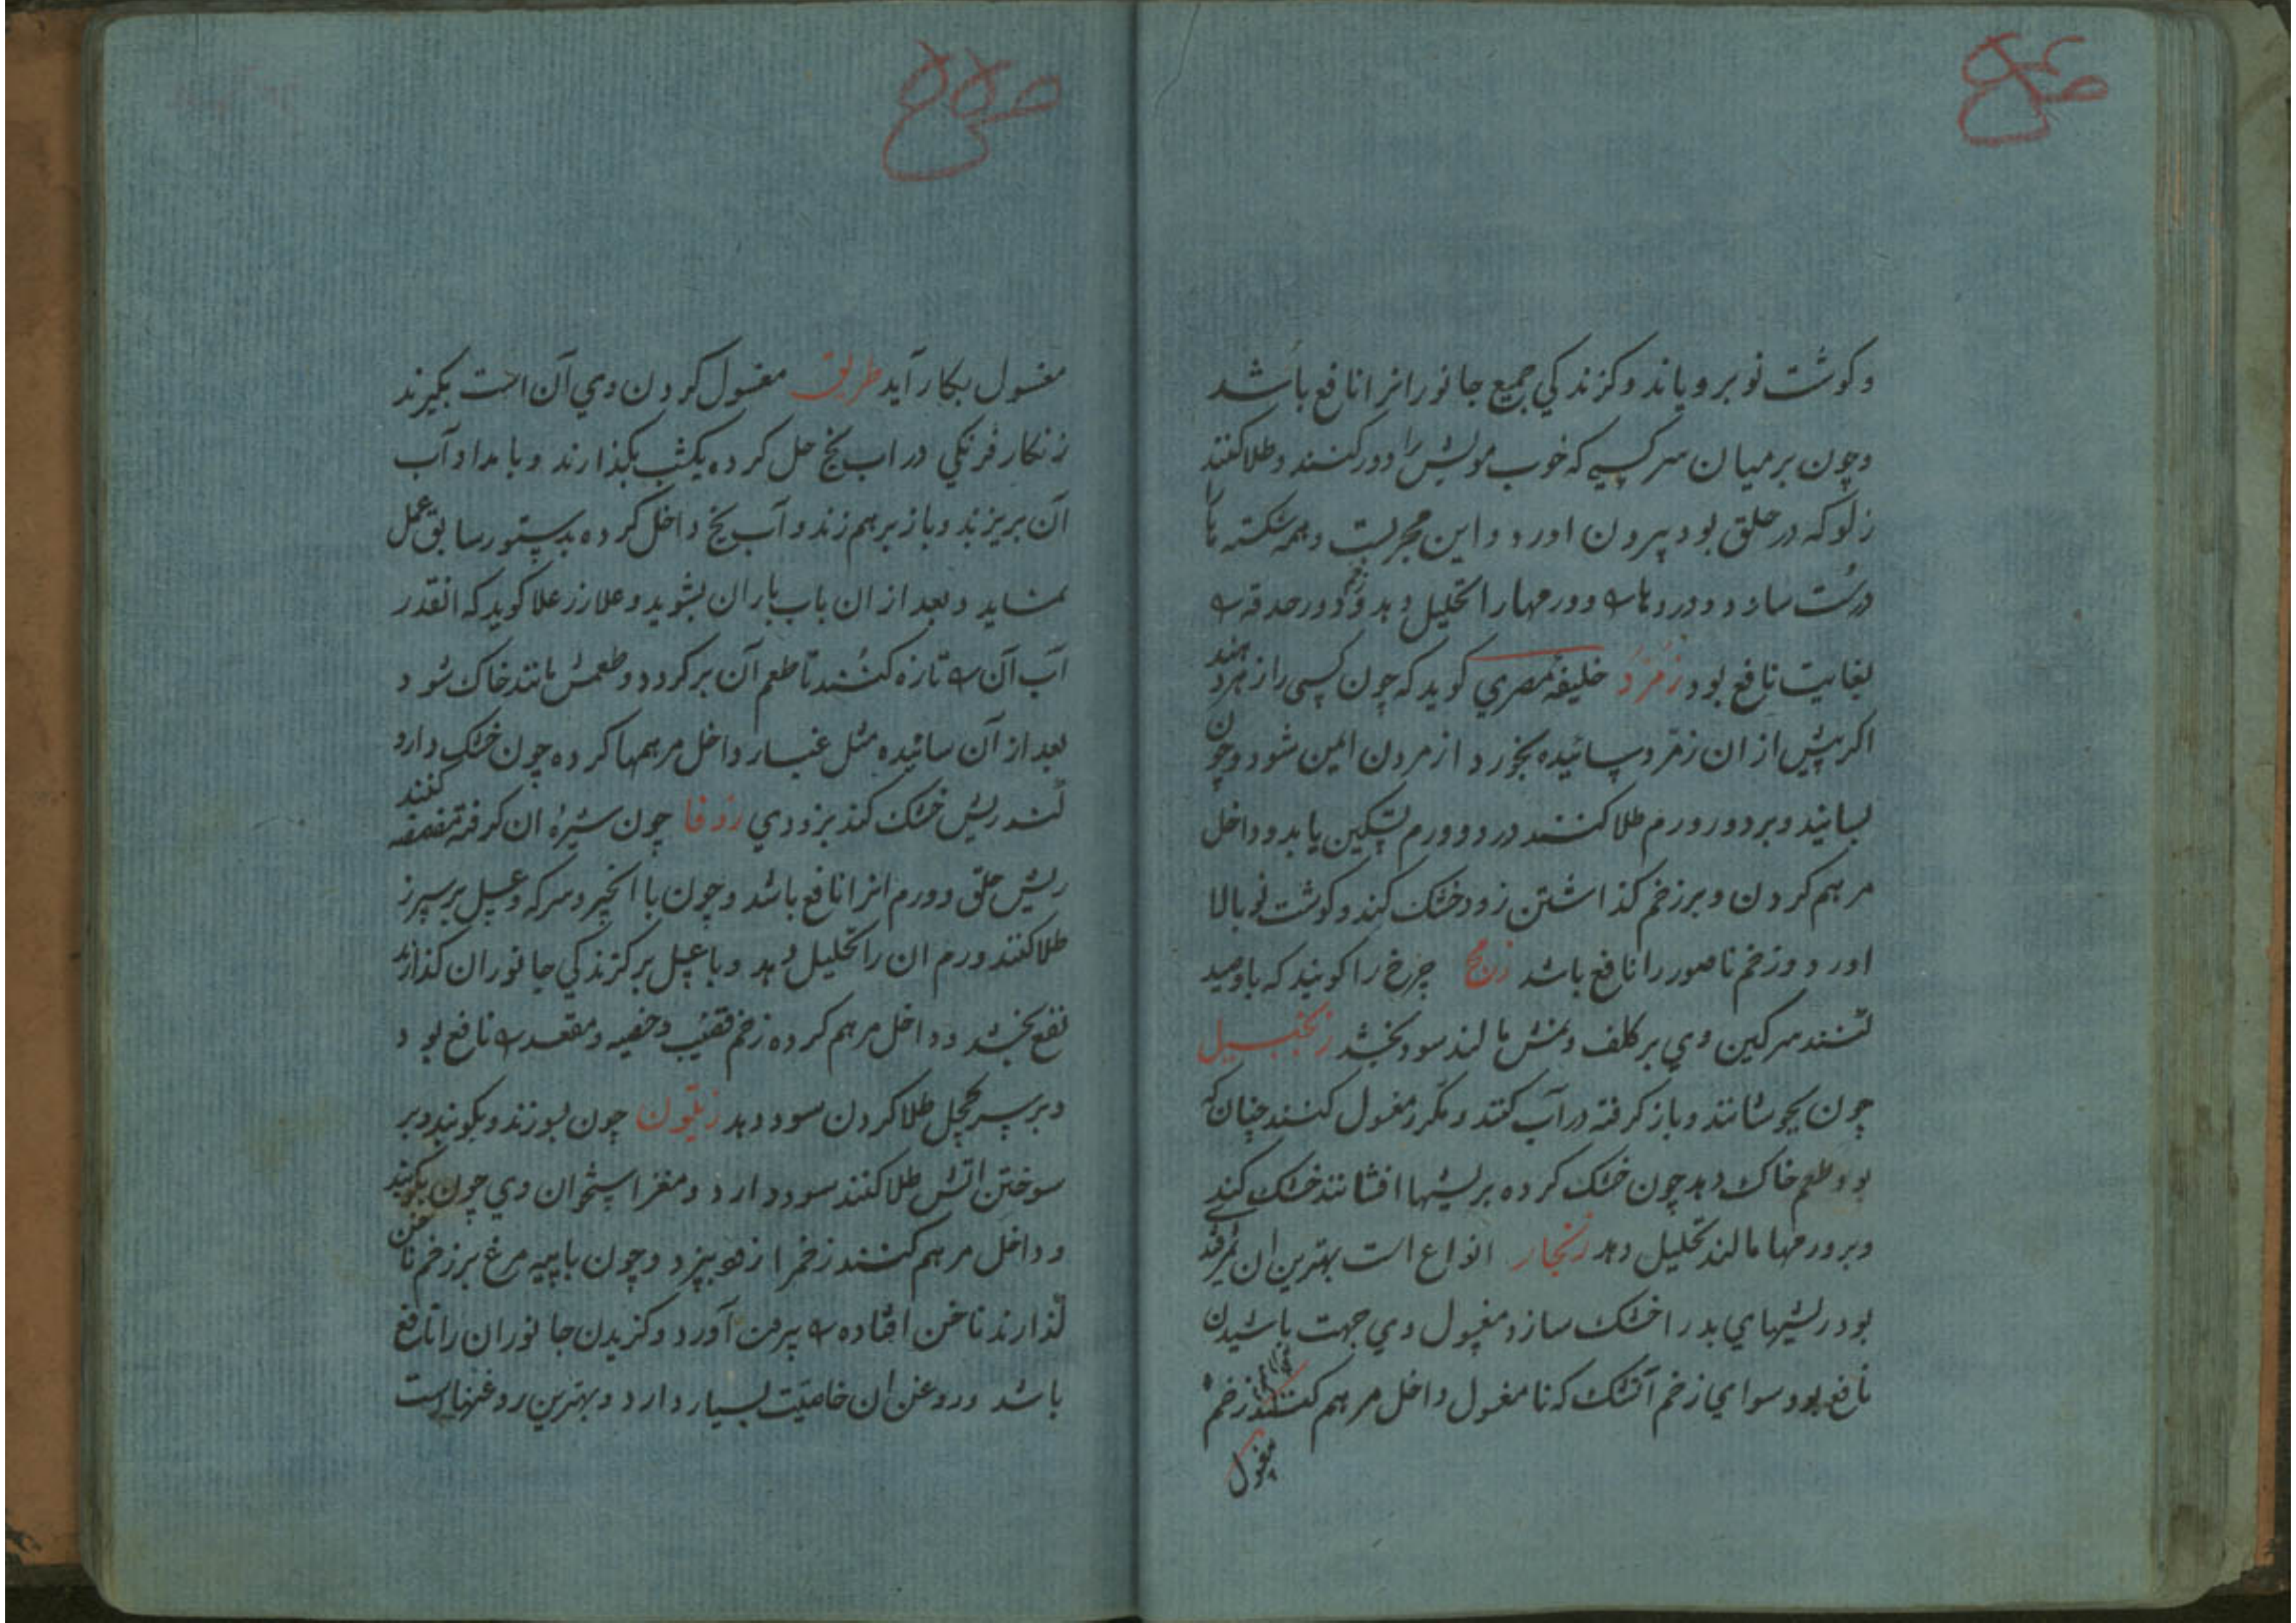 و کوشت نو برویاند و کزند کی جمیع جانورانرا نافع باشد
و چون بر میان سر کسیکه خوب مویش را دور کنند و طلا کنند
زلو که در حلق بود بیرون اورد و این مجربست و همه شکسته را
درست سازد و دردها و ورمها را تحلیل دهد و در حدقه
بغایت نافع بود زمرد خلیفهٔ مصری کوید که چون کسی را زهر دهند
اکر پیش از ان زمرد سائیده بخورد از مردن ایمن شود و چون
بسایند و بر درد و ورم طلا کنند درد و ورم تسکین یابد و داخل
مرهم کردن و بر زخم کذاشتن زود خشک کند و کوشت نو بالا
اورد و زخم ناصور را نافع باشد زمج چرخ را کویند که باو صید
کنند سرکین وی بر کلف و نمش مالند سود بخشد زنجبیل
چون بجوشانند و باز کرفته در آب کنند و مکرر مغسول کنند چنان که
بو و طعم خاک دهد چون خشک کرده بر ریشها افشانند خشک کند
و بر ورمها مالند تحلیل دهد زنجار انواع است بهترین ان
بود ریشهای بد را خشک سازد مغسول وی جهت پاشیدن
نافع بود سوای زخم آتشک که نا مغسول داخل مرهم کنند زخم
مغسول
مغسول بکار آید طریق مغسول کردن وی آن است بکیرند
زنکار فرنکی در اب یخ حل کرده یکشب بکذارند و بامداد آب
آن بریزند و باز برهم زند و آب یخ داخل کرده بدستور سابق عمل
نماید و بعد از ان باب باران بشوید و علا زر علا کوید که انقدر
آب آن تازه کنند تا طعم آن برکردد و طعمش مانند خاک شود
بعد از آن سائیده مثل غبار داخل مرهمها کرده چون خشک دارد
کند ریش خشک کند بزودی زوفا چون شیرهٔ ان کرفته مضمضه کنند
ریش حلق و ورم انرا نافع باشد و چون با انجیر و سرکه و عسل بر سپرز
طلا کنند ورم ان را تحلیل دهد و با عسل بر کزند کی جانوران کذارند
نفع بخشد و داخل مرهم کرده زخم قضیب و خصیه و مقعد نافع بود
و بر سر کچل طلا کردن سود دهد زیتون چون بسوزند و بکوبند و بر
سوختن اتش طلا کنند سود دارد و مغز استخوان وی چون بکوبند
و داخل مرهم کنند زخم را زود بپزد و چون با پیه مرغ بر زخم ناخن
کذارند ناخن افتاده بیرون آورد و کزیدن جانوران را نافع
باشد و روغن ان خاصیت بسیار دارد و بهترین روغنها است